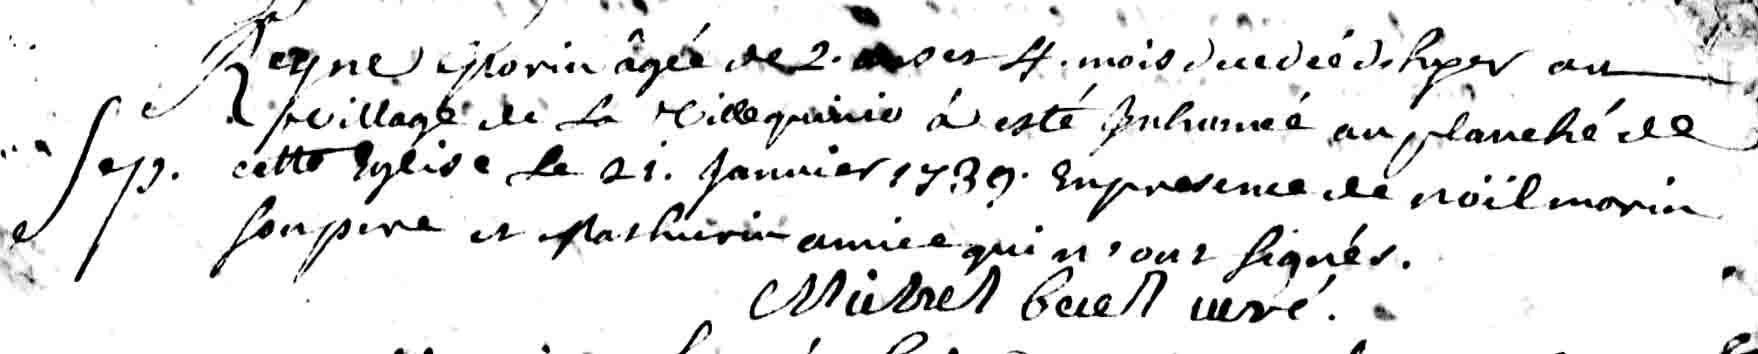 Reyne Morin âgée de 2. ans et 4. mois decedéé d'hyer au
village de La Villequinio à esté Inhumée au planché de
Sep. cette Eglise Le 21. Janvier 1739. En presence de nöil morin
son pere et Mathurin amice qui n'ont signés.
Michel curé.